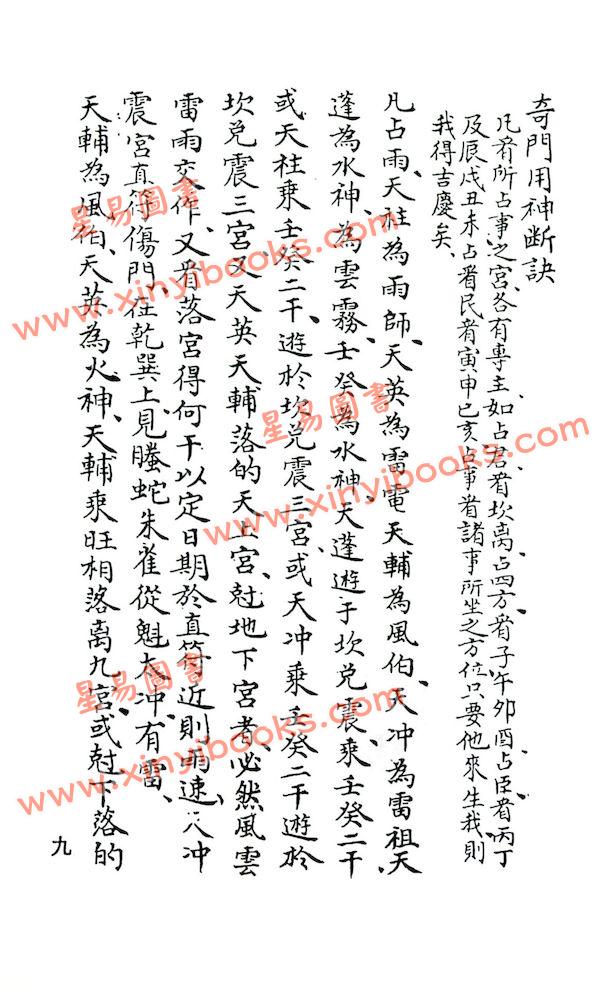 奇門用神断訣
凡看所占事之宮、各有專主、如占君看坎离、占四方看子午卯酉、占臣看丙丁
及辰戌丑未、占看民看寅申巳亥、占事看諸事所坐之方位、只要他來生我、則
我得吉慶矣、
凡占雨、天柱為雨師、天英為雷電、天輔為風伯、天冲為雷祖、天
蓬為水神、為雲霧、壬癸為水神、天蓬遊于坎兑震、乘壬癸二干、
或天柱乘壬癸二干、遊於坎兑震三宮、或天冲乘壬癸二干、遊於
坎兑震三宮、又天英天輔落的天上宮、尅地下宮者、必然風雲
雷雨交作、又看落宮得何干以定日期、於直符近則雨速、天冲
震宮直符傷門、在乾巽上、見螣蛇朱雀從魁太冲、有雷、
天輔為風伯、天英為火神、天輔乘旺相落离九宮、或尅下落的
九
星易圖書
www.xinyibooks.com
星易圖書
www.xinyibooks.com
星易圖書
www.xinyibooks.com